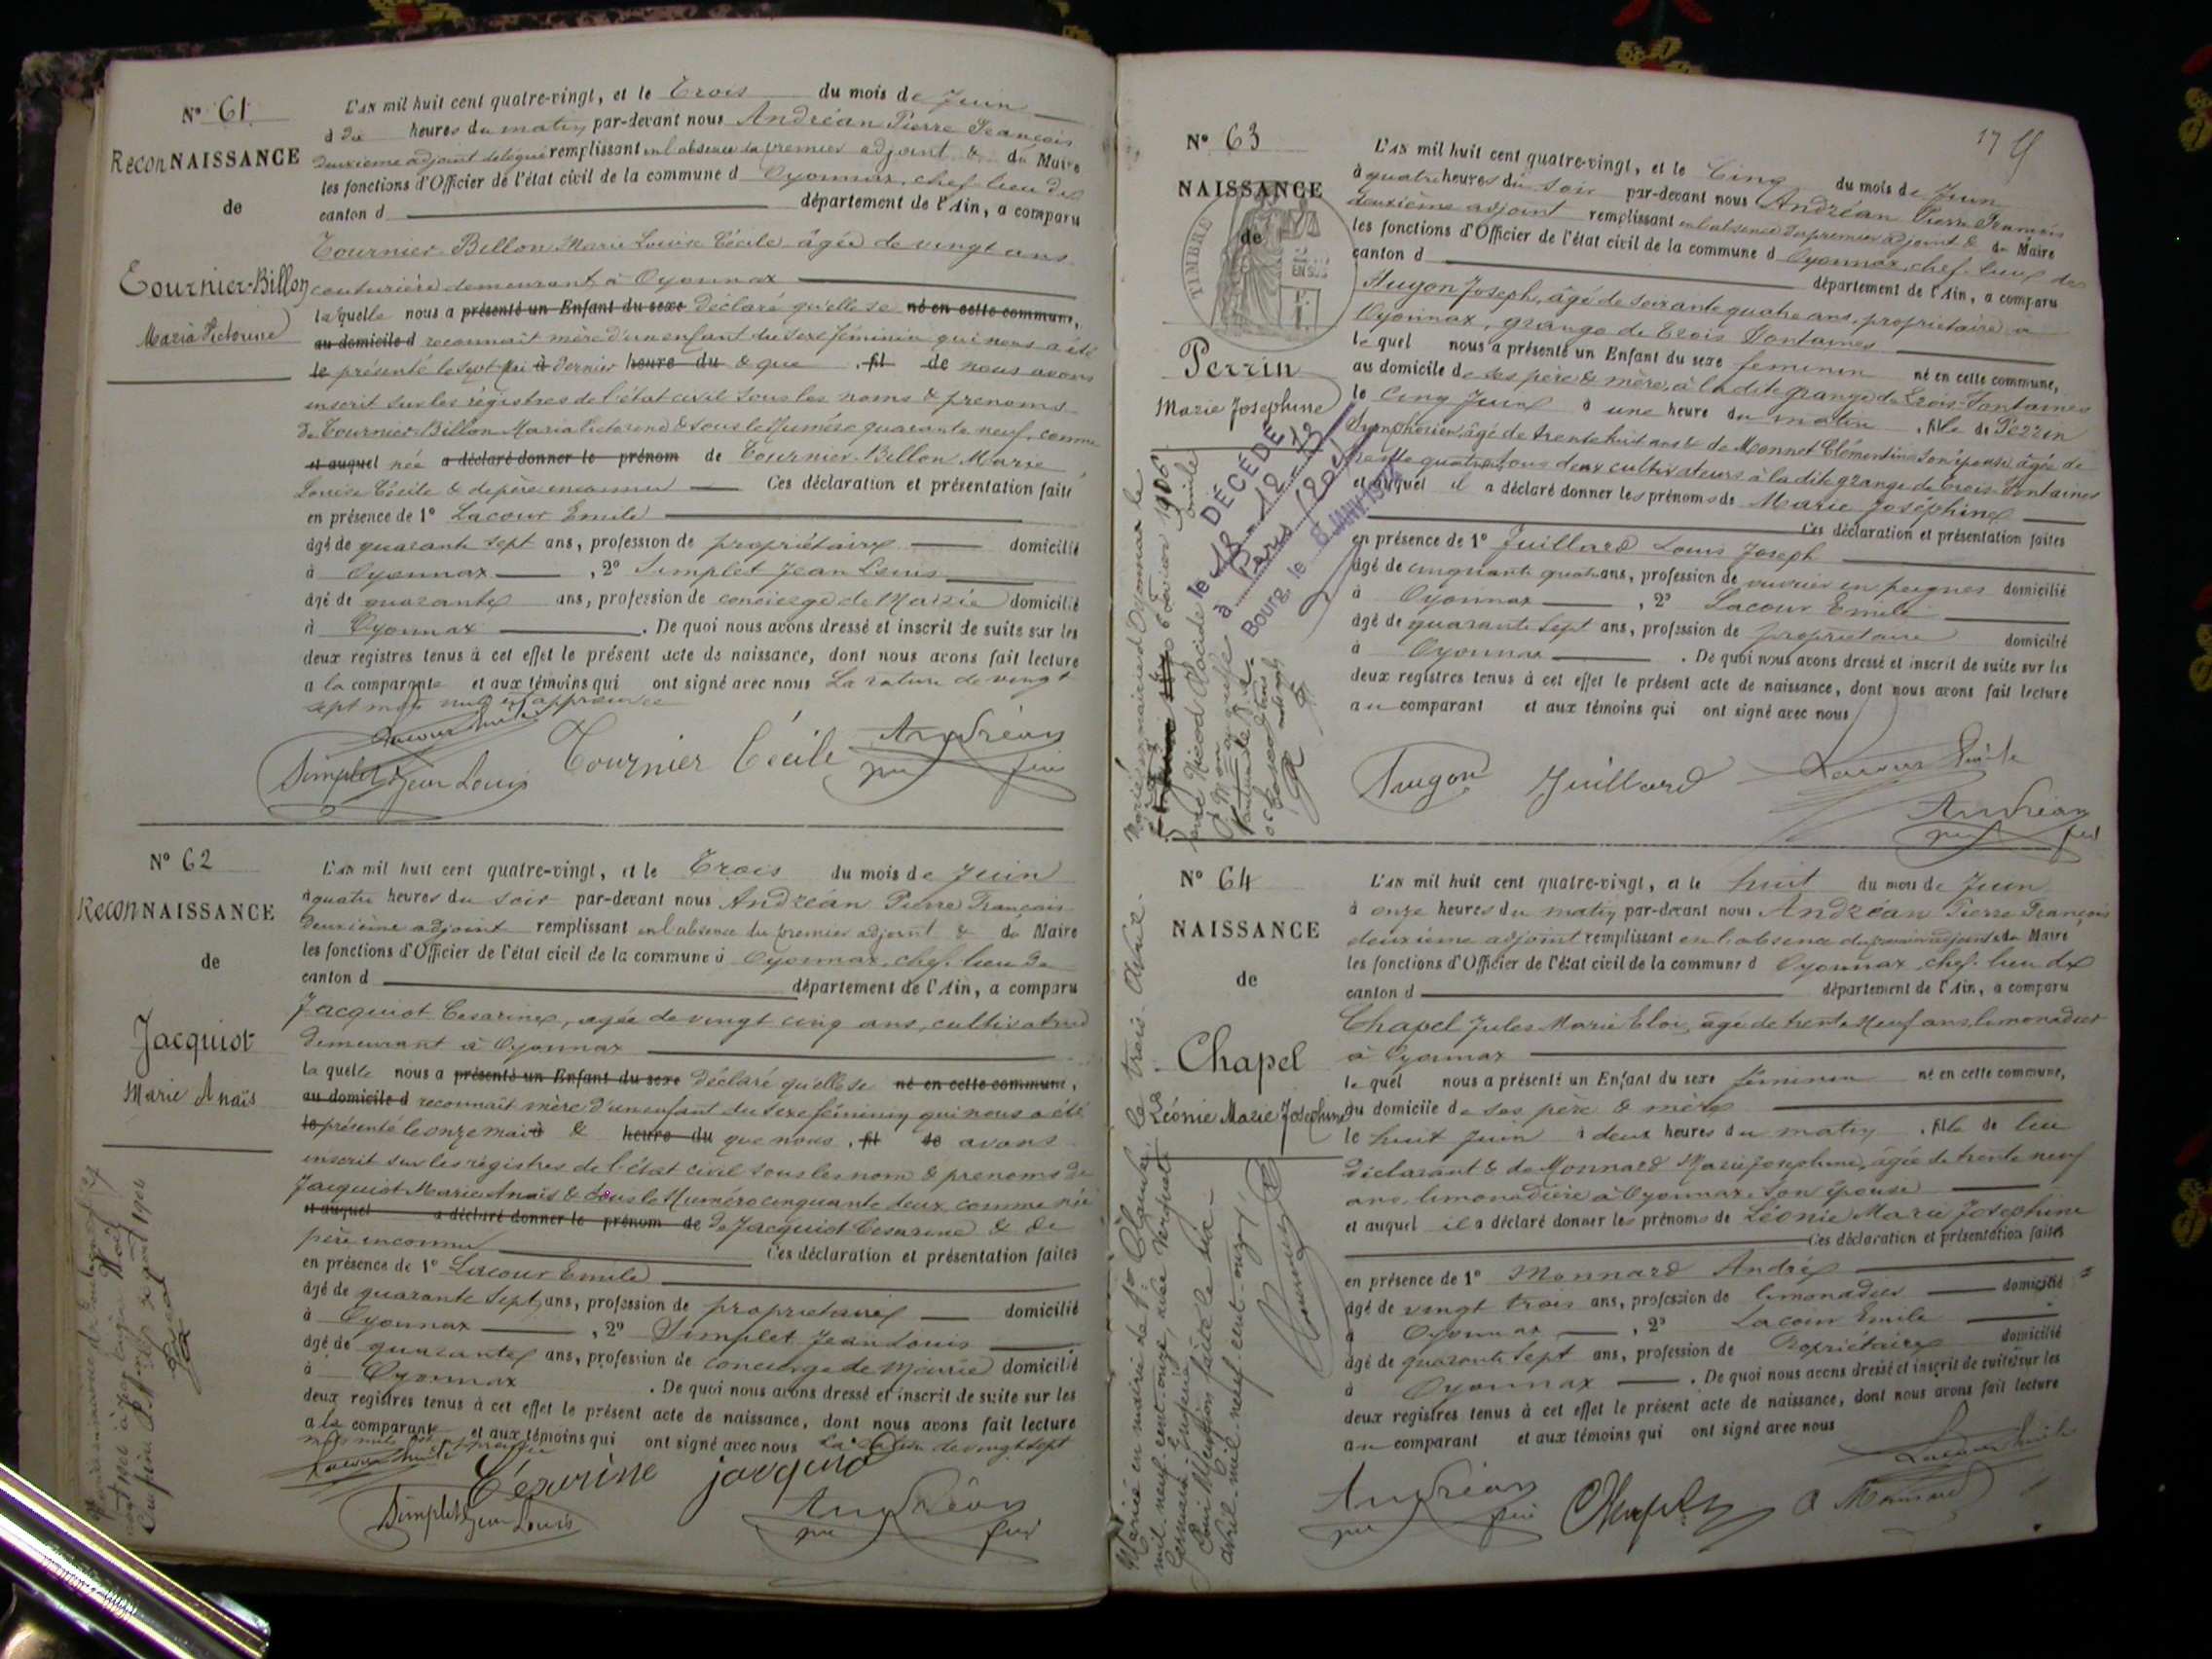 N° 61
ReconNAISSANCE
de
Tournier-Billon
Maria Victorine
L'an mil huit cent quatre-vingt, et le Trois du mois de Juin
à dix heures du matin par-devant nous Andréan Pierre François
deuxième adjoint délégué remplissant en l'absence du premier adjoint & du Maire
les fonctions d'Officier de l'état civil de la commune d Oyonnax, chef-lieu de
canton d département de l'Ain, a comparu
Tournier-Billon Marie Louise Cécile âgée de vingt ans
couturière demeurant à Oyonnax
laquelle nous a présenté un Enfant du sexe déclaré qu'elle se né en cette commune,
au domicile d reconnaît mère d'un enfant du sexe féminin qui nous a été
le présenté le sept Mai à dernier heure du & que , fil de nous avons
inscrit sur les régistres de l'état civil sous les noms & prenoms
de Tournier-Billon Maria Victorine & sous le Numéro quarante neuf, comme
et auquel née a déclaré donner le prénom de Tournier-Billon Marie
Louise Cécile & de père inconnu Ces déclaration et présentation faite
en présence de 1° Lacour Emile
âgé de quarante sept ans, profession de propriétaire domicilié
à Oyonnax , 2° Simplet Jean Louis
âgé de quarante ans, profession de concierge de Mairie domicilié
à Oyonnax . De quoi nous avons dressé et inscrit de suite sur les
deux registres tenus à cet effet le présent acte de naissance, dont nous avons fait lecture
a la comparante et aux témoins qui ont signé avec nous La rature de vingt
sept mots nuls est approuvée
Lacour Emile
Simplet Jean Louis Tournier Cécile Andréan
N° 62
ReconNAISSANCE
de
Jacquiot
Marie Anaïs
L'an mil huit cent quatre-vingt, et le Trois du mois de Juin
à quatre heures du soir par-devant nous Andréan Pierre François
deuxième adjoint remplissant en l'absence du premier adjoint & du Maire
les fonctions d'Officier de l'état civil de la commune d Oyonnax, chef-lieu de
canton d département de l'Ain, a comparu
Jacquiot Cesarine, agée de vingt cinq ans, cultivatrice
demeurant à Oyonnax
laquelle nous a présenté un Enfant du sexe déclaré qu'elle se né en cette commune,
au domicile d reconnaît mère d'un enfant du sexe féminin qui nous a été
le présenté le onze mai à & heure du que nous , fil de avons
inscrit sur les régistres de l'état civil sous les nom & prenoms de
Jacquiot Marie Anaïs & sous le Numéro cinquante deux comme née
et auquel a déclaré donner le prénom de de Jacquiot Cesarine & de
père inconnu Ces déclaration et présentation faites
en présence de 1° Lacour Emile
âgé de quarante sept ans, profession de propriétaire domicilié
à Oyonnax , 2° Simplet Jean Louis
âgé de quarante ans, profession de concierge de Mairie domicilié
à Oyonnax . De quoi nous avons dressé et inscrit de suite sur les
deux registres tenus à cet effet le présent acte de naissance, dont nous avons fait lecture
a la comparante et aux témoins qui ont signé avec nous La rature de vingt sept
mots nuls est approuvée
Lacour Emile Césarine
Simplet Jean Louis Andréan
17
N° 63
NAISSANCE
de
TIMBRE
Perrin
Marie Joséphine
DÉCÉDÉ le 18-12-
à Paris (20e)
Bourg, le 8 JANV.
L'an mil huit cent quatre-vingt, et le Cinq du mois de Juin
à quatre heures du soir par-devant nous Andréan Pierre François
deuxième adjoint remplissant en l'absence du premier adjoint & du Maire
les fonctions d'Officier de l'état civil de la commune d Oyonnax, chef-lieu de
canton d département de l'Ain, a comparu
Hugon Joseph, âgé de soixante quatre ans, propriétaire à
Oyonnax, grange de Trois Fontaines
lequel nous a présenté un Enfant du sexe feminin né en cette commune,
au domicile de ses père & mère, à la dite grange de Trois-Fontaines
le Cinq Juin à une heure du matin , fille de Perrin
Symphorien, âgé de trente huit ans & de Monnet Clémentine son épouse âgée de
trente quatre, tous deux cultivateurs à la dite grange de Trois-Fontaines
et auquel il a déclaré donner les prénoms de Marie Joséphine
Ces déclaration et présentation faites
en présence de 1° Juillard Louis Joseph
âgé de cinquante quatre ans, profession de ouvrier en peignes domicilié
à Oyonnax , 2° Lacour Emile
âgé de quarante sept ans, profession de propriétaire domicilié
à Oyonnax . De quoi nous avons dressé et inscrit de suite sur les
deux registres tenus à cet effet le présent acte de naissance, dont nous avons fait lecture
au comparant et aux témoins qui ont signé avec nous
Hugon Juillard Lacour Emile
Andréan
N° 64
NAISSANCE
de
Chapel
Léonie Marie Joséphine
Marié en mairie de le trois Avril
mil-neuf-cent-onze avec
Germain Eugène
avril-mil-neuf-cent-onze
L'an mil huit cent quatre-vingt, et le huit du mois de Juin
à onze heures du matin par-devant nous Andréan Pierre François
deuxième adjoint remplissant en l'absence du premier adjoint & du Maire
les fonctions d'Officier de l'état civil de la commune d Oyonnax, chef-lieu de
canton d département de l'Ain, a comparu
Chapel Jules Marie Eloi, âgé de trente neuf ans, limonadier
à Oyonnax
lequel nous a présenté un Enfant du sexe féminin né en cette commune,
au domicile de ses père & mère
le huit Juin à deux heures du matin , fille de lui
déclarant & de Monnard Marie Joséphine, âgée de trente neuf
ans, limonadière à Oyonnax son épouse
et auquel il a déclaré donner les prénoms de Léonie Marie Joséphine
Ces déclaration et présentation faites
en présence de 1° Monnard André
âgé de vingt trois ans, profession de limonadier domicilié
à Oyonnax , 2° Lacour Emile
âgé de quarante sept ans, profession de Propriétaire domicilié
à Oyonnax . De quoi nous avons dressé et inscrit de suite sur les
deux registres tenus à cet effet le présent acte de naissance, dont nous avons fait lecture
au comparant et aux témoins qui ont signé avec nous
Lacour Emile
Andréan Chapel A Monnard